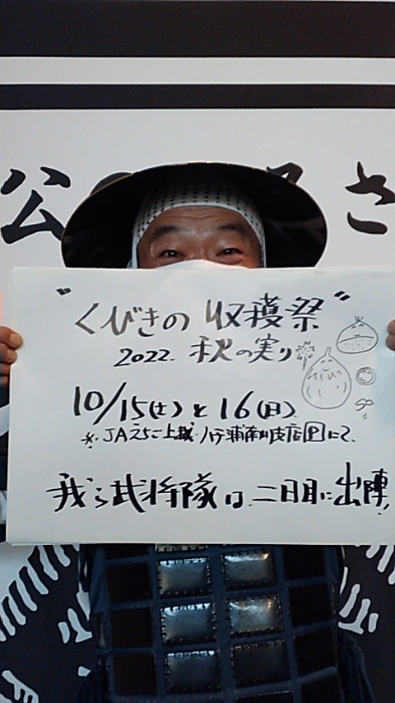 公
さ
"くびきの収穫祭"
2022. 秋の実り
10/15(土)と16(日)
※. JAえちご上越
支店Ⓟにて、
我ら武将隊は、二日目に出陣